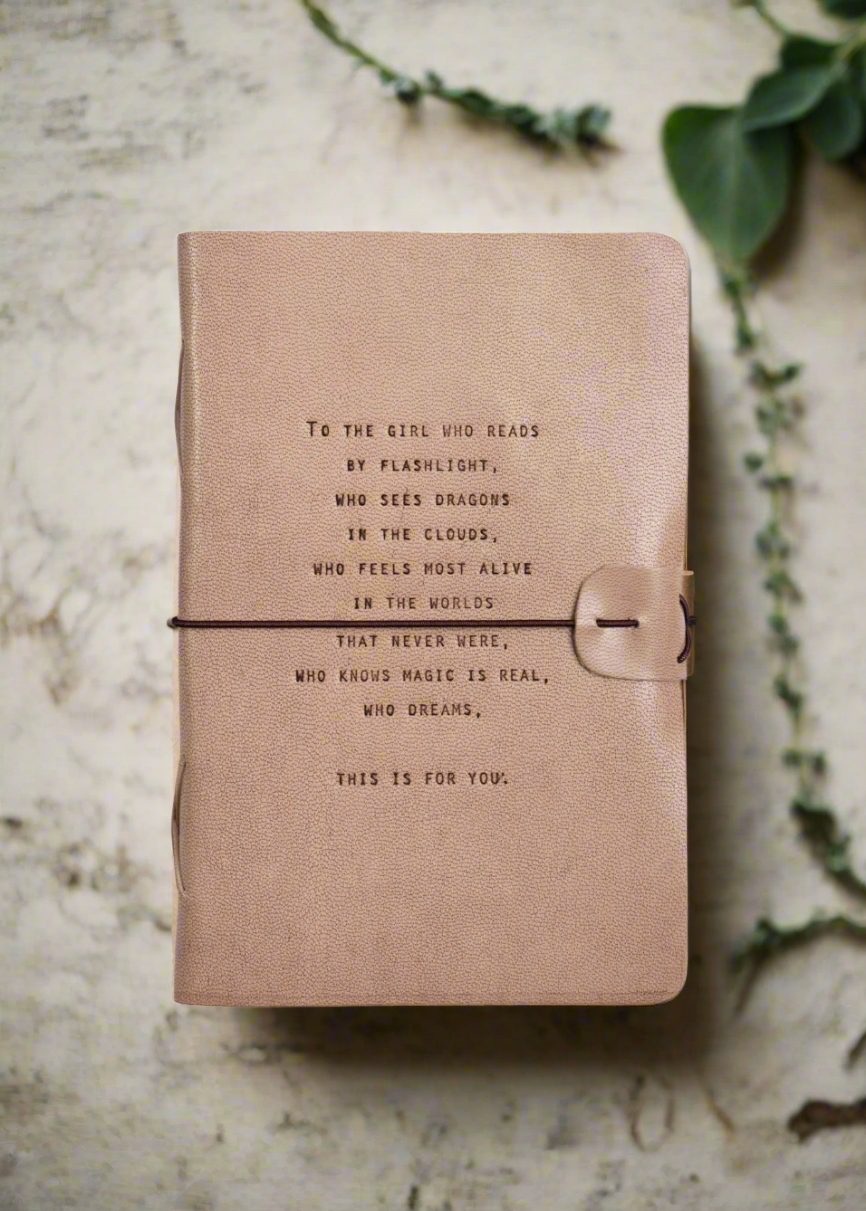 To the girl who reads
by flashlight,
who sees dragons
in the clouds,
who feels most alive
in the worlds
that never were,
who knows magic is real,
who dreams,
this is for you.